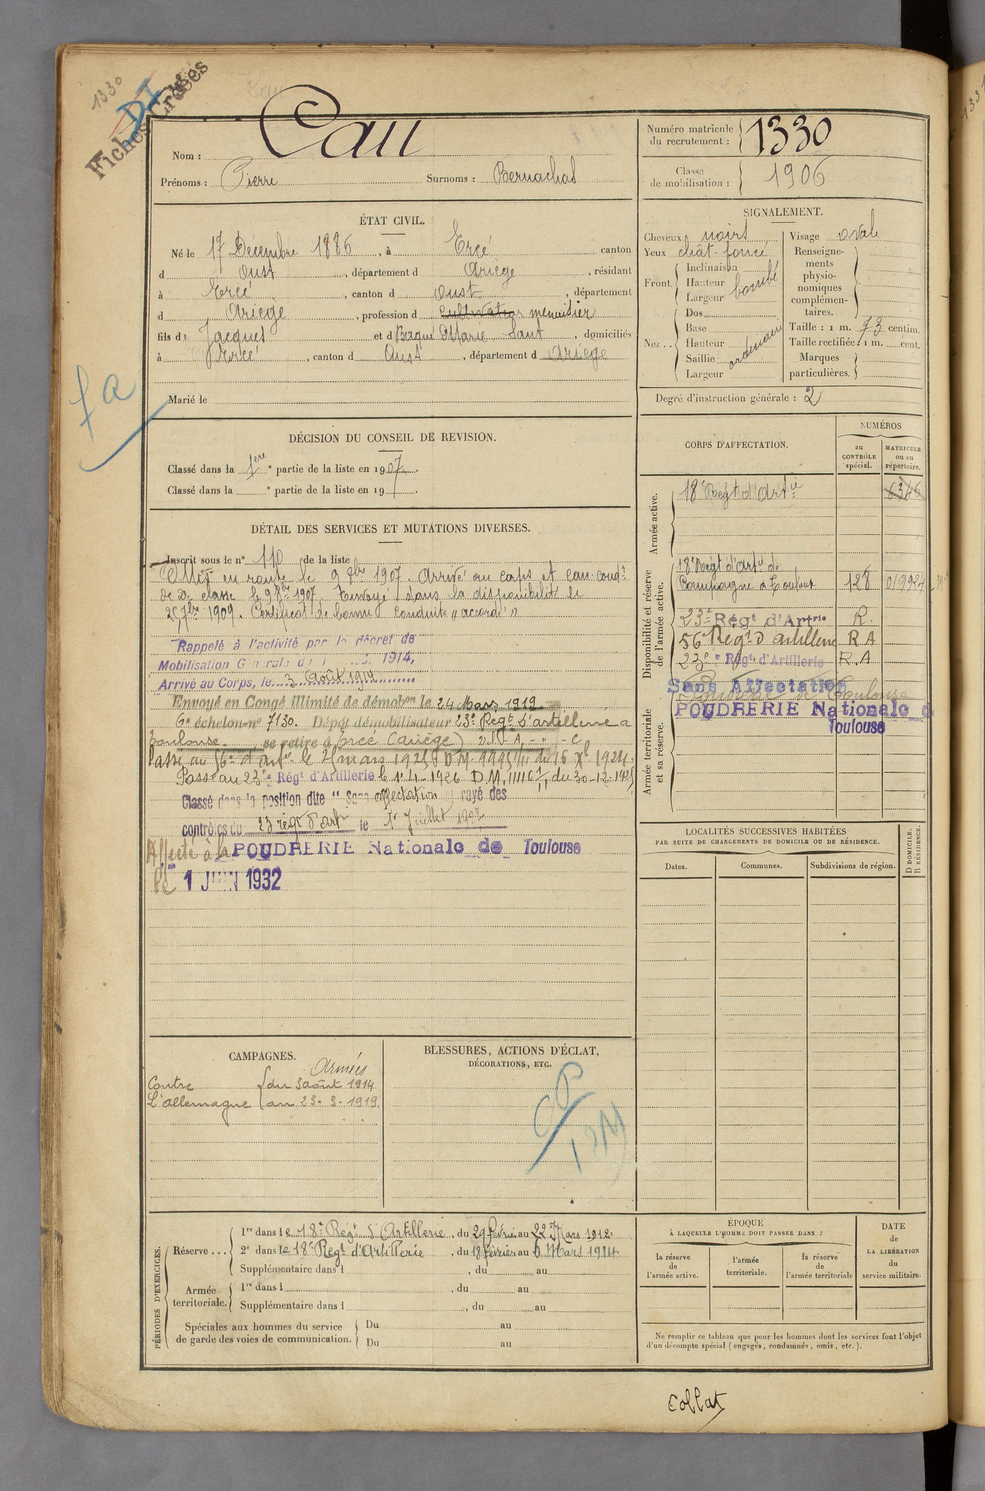 1330
Fiches Créées
Nom : Cau
Prénoms : Pierre Surnoms : Bernachal
Numéro matricule du recrutement : 1330
Classe de mobilisation : 1906
ÉTAT CIVIL.
Né le 17 Décembre 1886, à Ercé canton
d Oust, département d Ariège, résidant
à Ercé, canton d Oust, département
d Ariège, profession d cultivateur menuisier
fils de Jacques et d Baqué Marie, domiciliés
à Ercé, canton d Oust, département d Ariège
Marié le
SIGNALEMENT.
Cheveux noirs
Yeux chât. foncé
Front. Inclinaison
Hauteur bombé
Largeur
Nez.. Dos
Base
Hauteur ordinaire
Saillie
Largeur
Visage oval
Renseignements physionomiques complémentaires.
Taille : 1 m. 73 centim.
Taille rectifiée : 1 m. cent.
Marques particulières.
Degré d'instruction générale : 2
fa
DÉCISION DU CONSEIL DE REVISION.
Classé dans la 1ère partie de la liste en 1907.
Classé dans la e partie de la liste en 19 .
CORPS D'AFFECTATION.
NUMÉROS
au CONTRÔLE spécial.
MATRICULE ou au répertoire.
Armée active.
18e Régt d'Artie 6346
Disponibilité et réserve de l'armée active.
18e Régt d'Artie de
Campagne à Toulouse 128
23e Régt d'Artrie R.
56e Régt d'artillerie R A
23e Régt d'Artillerie R.A
Sans Affectation
POUDRERIE Nationale d
Toulouse
Armée territoriale et sa réserve.
DÉTAIL DES SERVICES ET MUTATIONS DIVERSES.
Inscrit sous le n° 110 de la liste
Mis en route le 9 8bre 1907. Arrivé au corps et can. condr
de 2e classe le 9 8bre 1907. Envoyé dans la disponibilité le
25 7bre 1909. Certificat de bonne conduite "accordé"
Rappelé à l'activité par le décret de
Mobilisation Générale du 1 1914,
Arrivé au Corps, le 3 Août 1914
Envoyé en Congé Illimité de démobon le 24 Mars 1919
6e échelon n° 7130. Dépôt démobilisateur 23e Régt d'artillerie à
Toulouse se retire à Ercé (Ariège)
Passé au 56e d'Artie le 2 mars 1925
Passé au 23e Régt d'Artillerie le 1-4-1926 D.M. du 30-12-1925
Classé dans la position dite "Sans affectation" rayé des
contrôles du 23 régt d'art le 1er Juillet
Affecté à la POUDRERIE Nationale de Toulouse
le 1 JUIN 1932
LOCALITÉS SUCCESSIVES HABITÉES
PAR SUITE DE CHANGEMENTS DE DOMICILE OU DE RÉSIDENCE.
Dates. Communes. Subdivisions de région. D DOMICILE. R RÉSIDENCE.
CAMPAGNES.
Armées
Contre du 3 août 1914
L'allemagne au 23-3-1919.
BLESSURES, ACTIONS D'ÉCLAT,
DÉCORATIONS, ETC.
PÉRIODES D'EXERCICES.
Réserve... 1re dans le 18e Régt d'Artillerie, du 29 février au 22 Mars 1912
2e dans le 18e Régt d'Artillerie, du 18 février au 6 Mars 1914
Supplémentaire dans l , du au
Armée territoriale. 1re dans l , du au
Supplémentaire dans l , du au
Spéciales aux hommes du service de garde des voies de communication. Du au
Du au
ÉPOQUE
À LAQUELLE L'HOMME DOIT PASSER DANS :
la réserve de l'armée active.
l'armée territoriale.
la réserve de l'armée territoriale
DATE de LA LIBÉRATION du service militaire.
Ne remplir ce tableau que pour les hommes dont les services font l'objet
d'un décompte spécial (engagés, condamnés, omis, etc.).
Collat